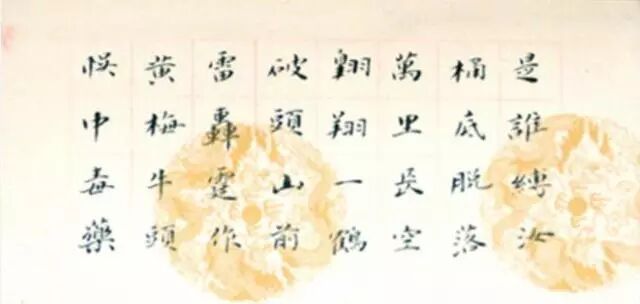 是誰縛汝
桶底脫落
萬里長空
翱翔一鶴
破頭山前
雷轟霆作
黃梅牛頭
悞中毒藥